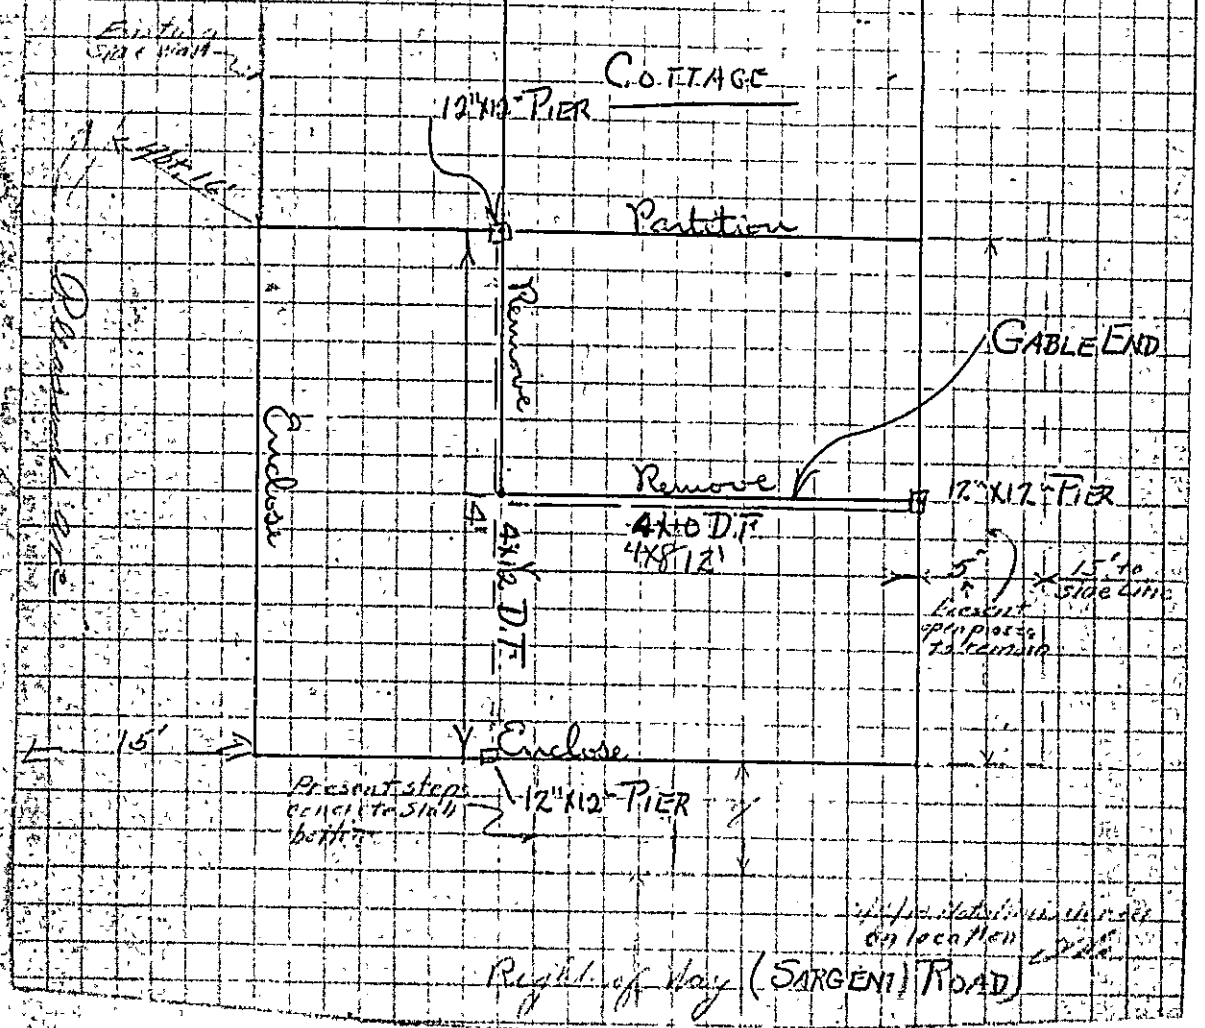 Existing
side wall
COTTAGE
12"X12" PIER
Abt. 16'
Partition
Remove
GABLE END
Pleasant Ave
Enclose
Remove
12"X12" PIER
4X10 D.F.
4X8 12'
4X12 D.F.
5'
15' to
side line
Present
open piazza
to remain
15'
Enclose
Present steps
concrete slab
12"X12" PIER
on location
Right of Way (SARGENT) ROAD)